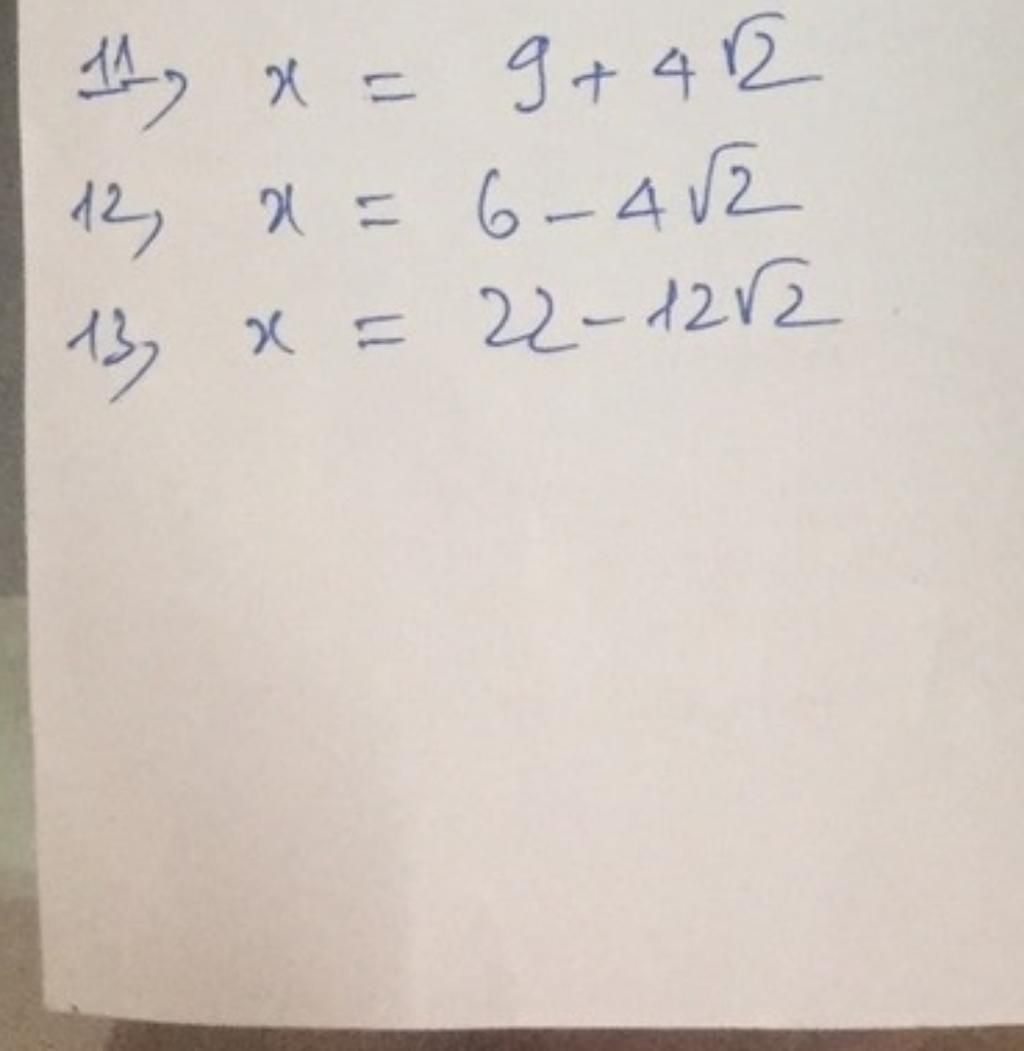 11, x = 9 + 4√2
12, x = 6 - 4√2
13, x = 22 - 12√2